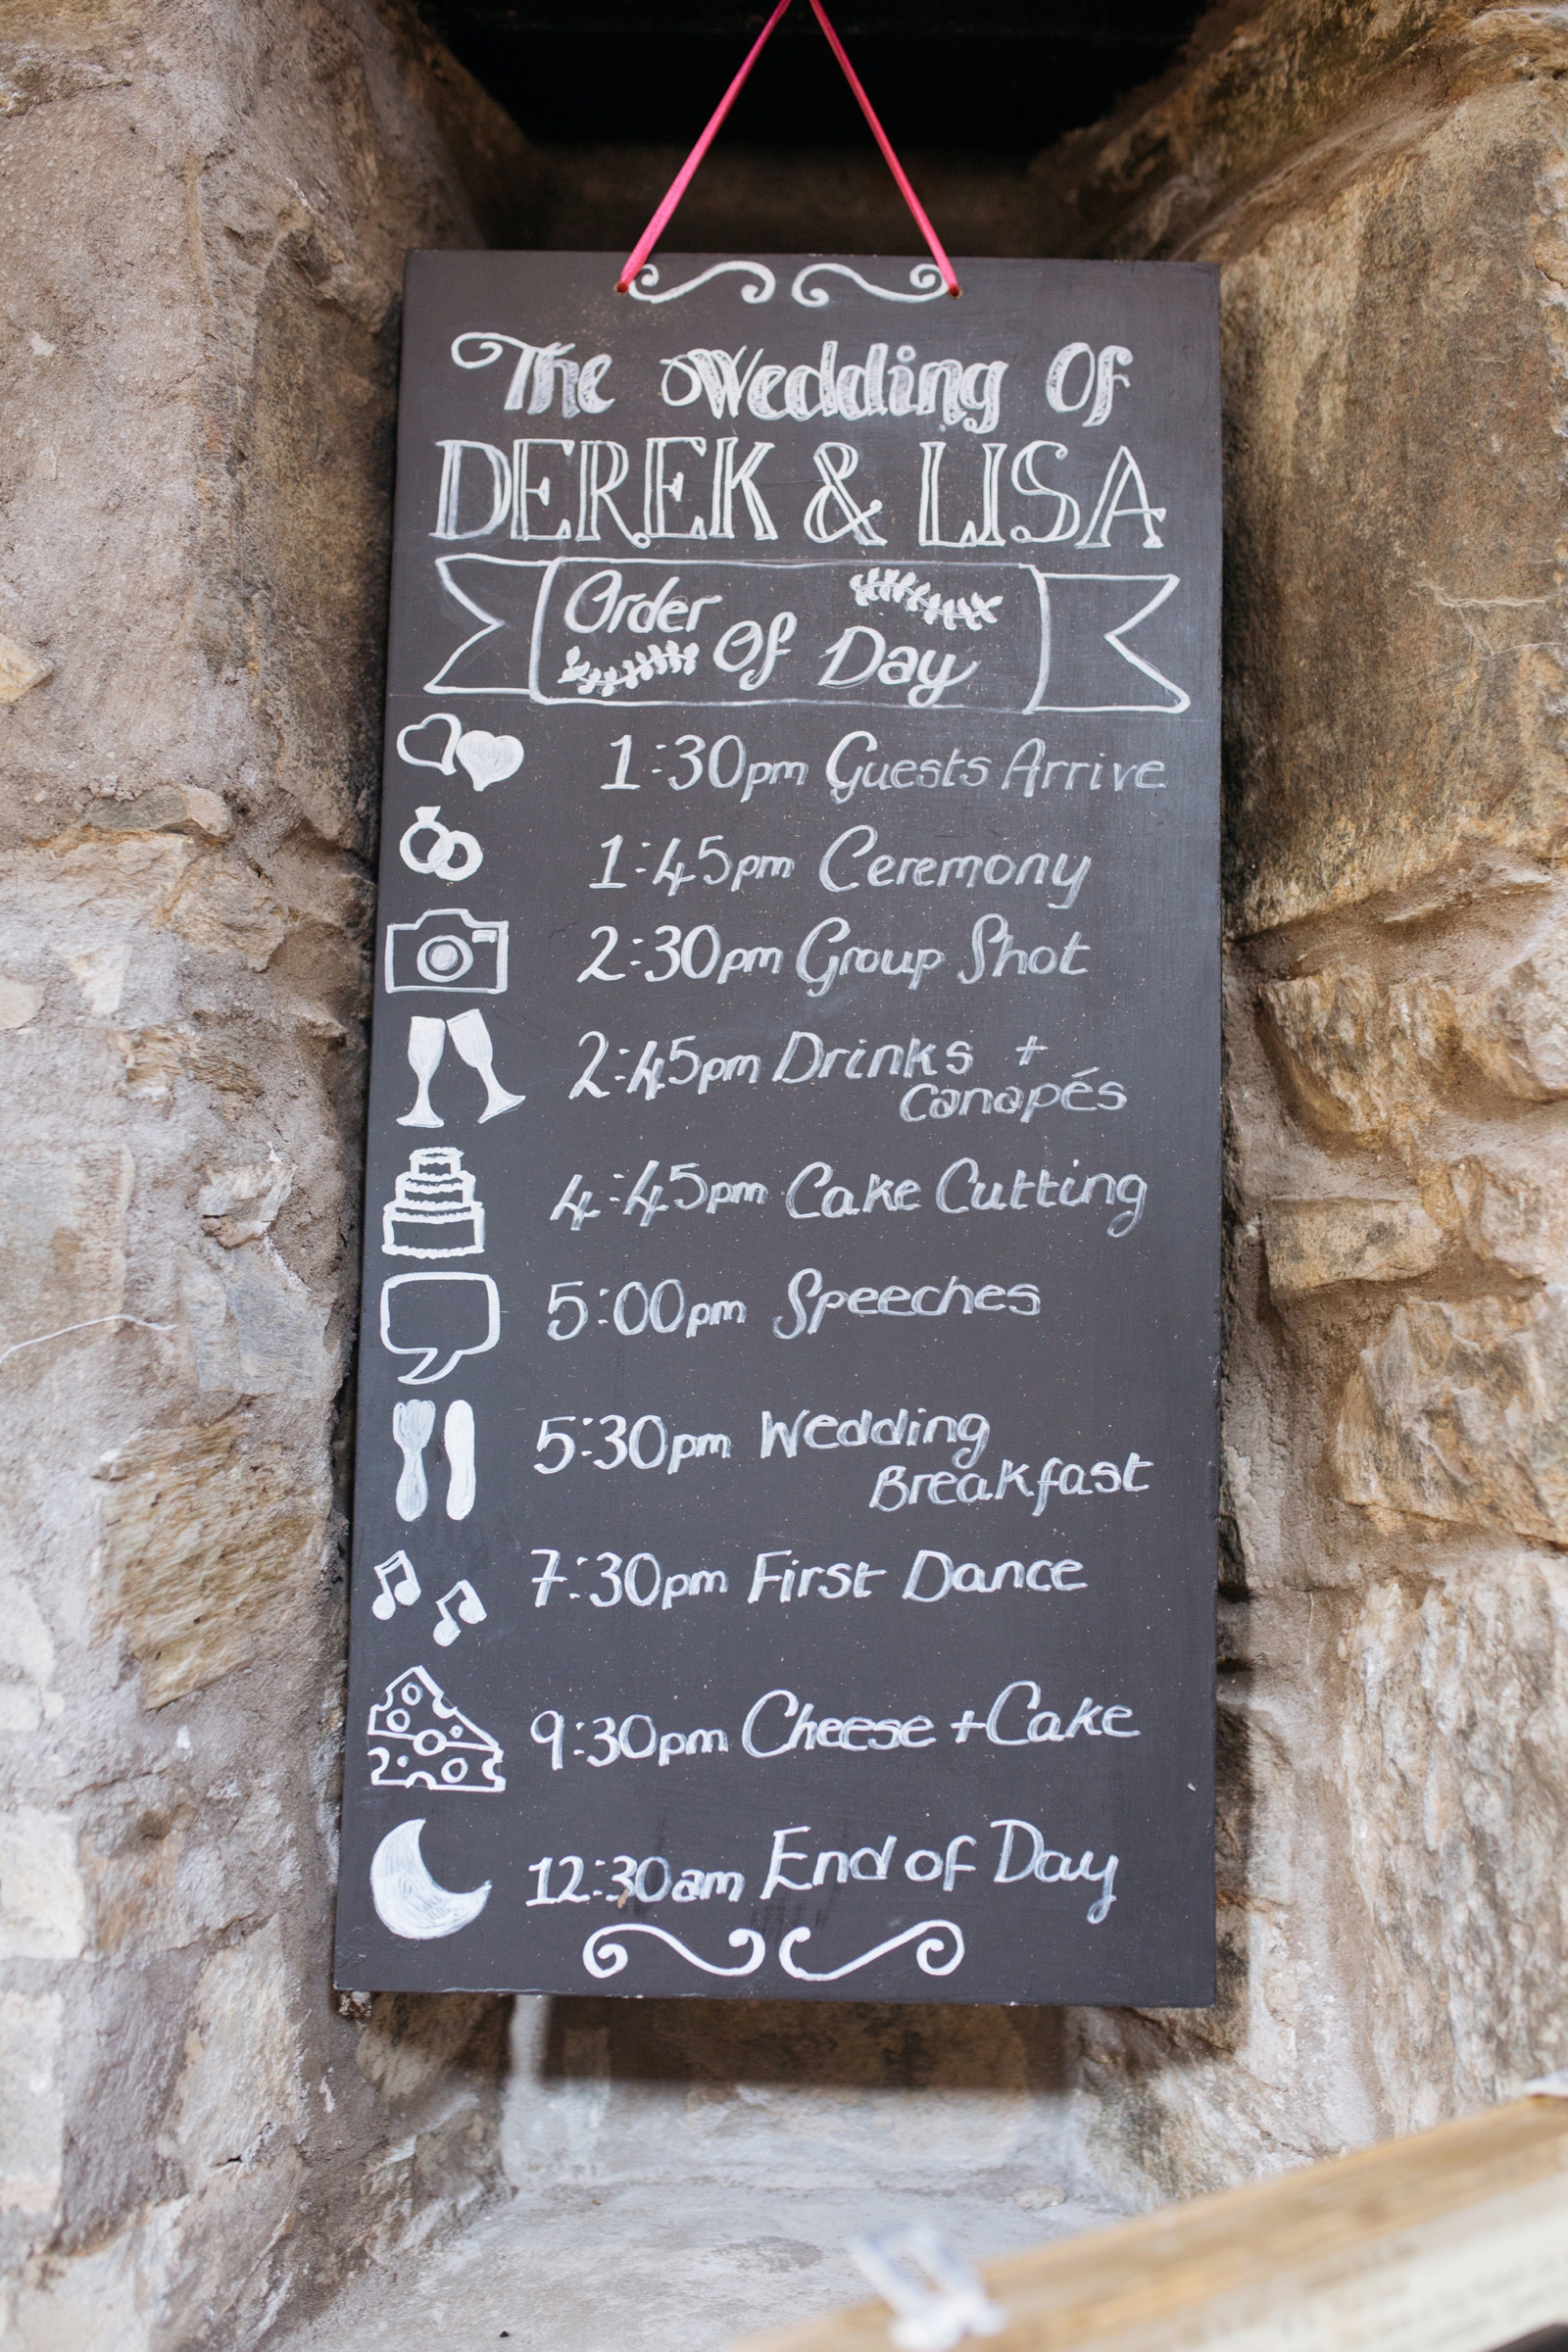 The Wedding Of
DEREK & LISA
Order
Of Day
1:30pm Guests Arrive
1:45pm Ceremony
2:30pm Group Shot
2:45pm Drinks +
Canapés
4:45pm Cake Cutting
5:00pm Speeches
5:30pm Wedding
Breakfast
7:30pm First Dance
9:30pm Cheese + Cake
12:30am End of Day